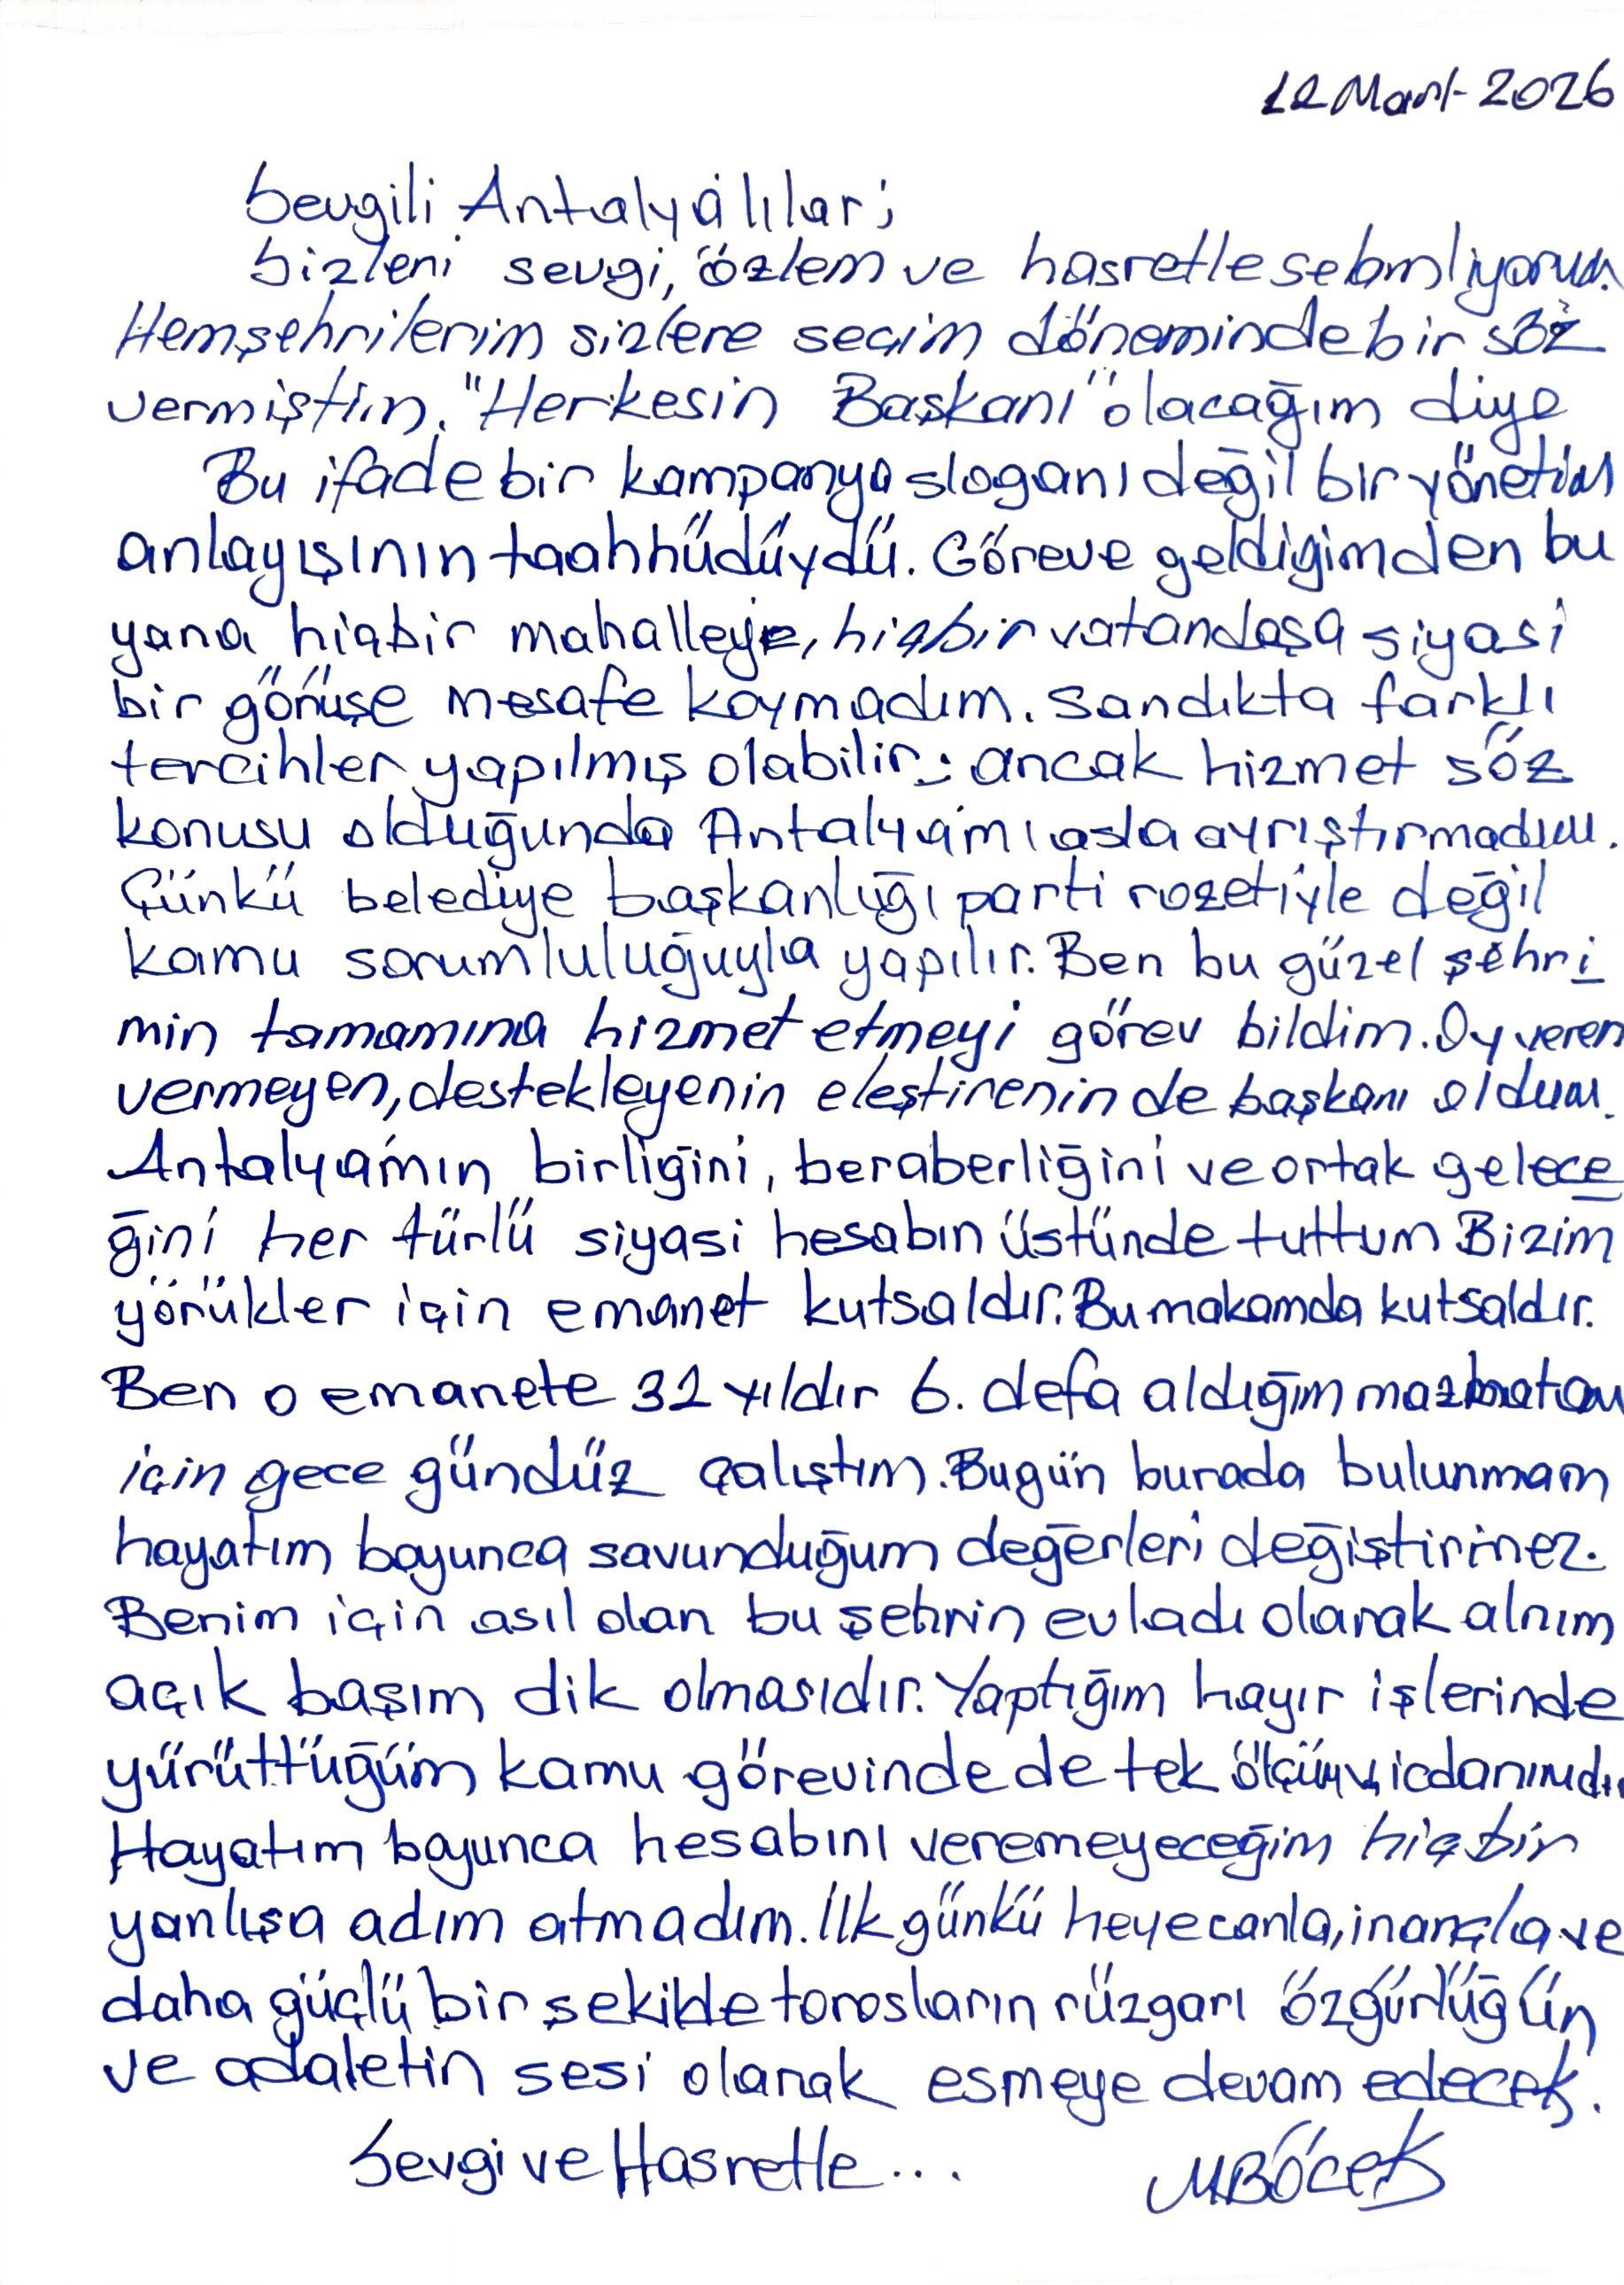 12 Mart 2026
Sevgili Antalyalılar;
Sizleri sevgi, özlem ve hasretle selamlıyorum.
Hemşehrilerim sizlere seçim döneminde bir söz
vermiştim. "Herkesin Başkanı" olacağım diye
Bu ifade bir kampanya sloganı değil bir yönetim
anlayışının taahhüdüydü. Göreve geldiğimden bu
yana hiçbir mahalleye, hiçbir vatandaşa siyasi
bir görüşe mesafe koymadım. Sandıkta farklı
tercihler yapılmış olabilir; ancak hizmet söz
konusu olduğunda Antalyamı asla ayrıştırmadım.
Çünkü belediye başkanlığı parti rozetiyle değil
kamu sorumluluğuyla yapılır. Ben bu güzel şehri
min tamamına hizmet etmeyi görev bildim. Oy veren
vermeyen, destekleyenin eleştirenin de başkanı oldum.
Antalyamın birliğini, beraberliğini ve ortak gelece
ğini her türlü siyasi hesabın üstünde tuttum Bizim
yörükler için emanet kutsaldır. Bu makamda kutsaldır.
Ben o emanete 32 yıldır 6. defa aldığım mazbatam
için gece gündüz çalıştım. Bugün burada bulunmam
hayatım boyunca savunduğum değerleri değiştirmez.
Benim için asıl olan bu şehrin evladı olarak alnım
açık başım dik olmasıdır. Yaptığım hayır işlerinde
yürüttüğüm kamu görevinde de tek ölçüm vicdanımdır
Hayatım boyunca hesabını veremeyeceğim hiçbir
yanlışa adım atmadım. İlk günkü heyecanla, inançla ve
daha güçlü bir şekilde torosların rüzgarı özgürlüğün
ve adaletin sesi olarak esmeye devam edecek.
Sevgi ve Hasretle...
MBÖCEK